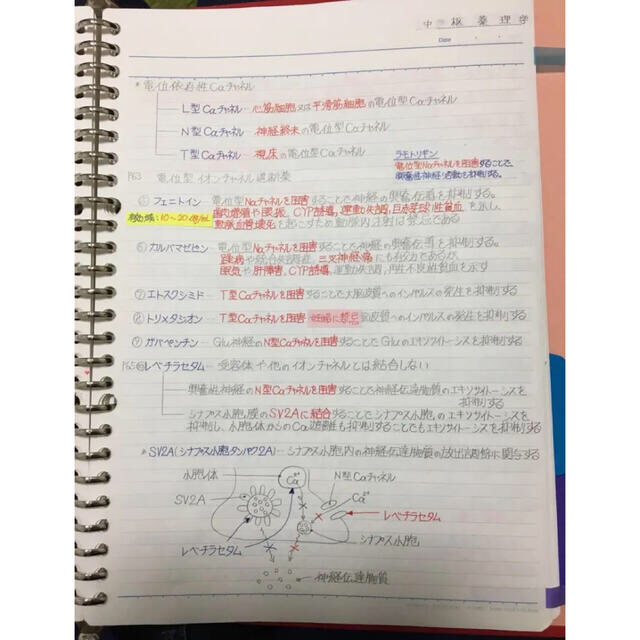 中枢薬理学
Date
* 電位依存性Caチャネル
L型Caチャネル… 心筋細胞又は平滑筋細胞の電位型Caチャネル
N型Caチャネル… 神経終末の電位型Caチャネル
T型Caチャネル… 視床の電位型Caチャネル
ラモトリギン
電位型Naチャネルを阻害することで、
興奮性神経の活動を抑制する。
P63 電位型イオンチャネル遮断薬
⑤ フェニトイン… 電位型Naチャネルを阻害することで神経の興奮伝導を抑制する。
有効域:10~20
歯肉増殖や眼振、CYP誘導、運動失調、巨赤芽球性貧血を示し、
動脈血管壊死を起こすため動脈内注射は禁忌である
⑥ カルバマゼピン… 電位型Naチャネルを阻害することで神経の興奮伝導を抑制する。
躁病や統合失調症、三叉神経痛にも有効であるが、
眠気や肝障害、CYP誘導、運動失調、再生不良性貧血を示す
⑦ エトスクシミド… T型Caチャネルを阻害することで大脳皮質へのインパルスの発生を抑制する
⑧ トリメタジオン… T型Caチャネルを阻害 妊婦に禁忌 脳皮質へのインパルスの発生を抑制する
⑨ ガバペンチン… Glu神経のN型Caチャネルを阻害することでGluのエキソサイトーシスを抑制する
P65 ⑩ レベチラセタム… 受容体や他のイオンチャネルとは結合しない
興奮性神経のN型Caチャネルを阻害することで神経伝達物質のエキソサイトーシスを
抑制する
シナプス小胞膜のSV2Aに結合することでシナプス小胞のエキソサイトーシスを
抑制し、小胞体からのCa遊離も抑制することでもエキソサイトーシスを抑制する
* SV2A(シナプス小胞タンパク2A)… シナプス小胞内の神経伝達物質の放出調節に関与する
小胞体
Ca²⁺
N型Caチャネル
SV2A
Ca²⁺
レベチラセタム
レベチラセタム
シナプス小胞
神経伝達物質